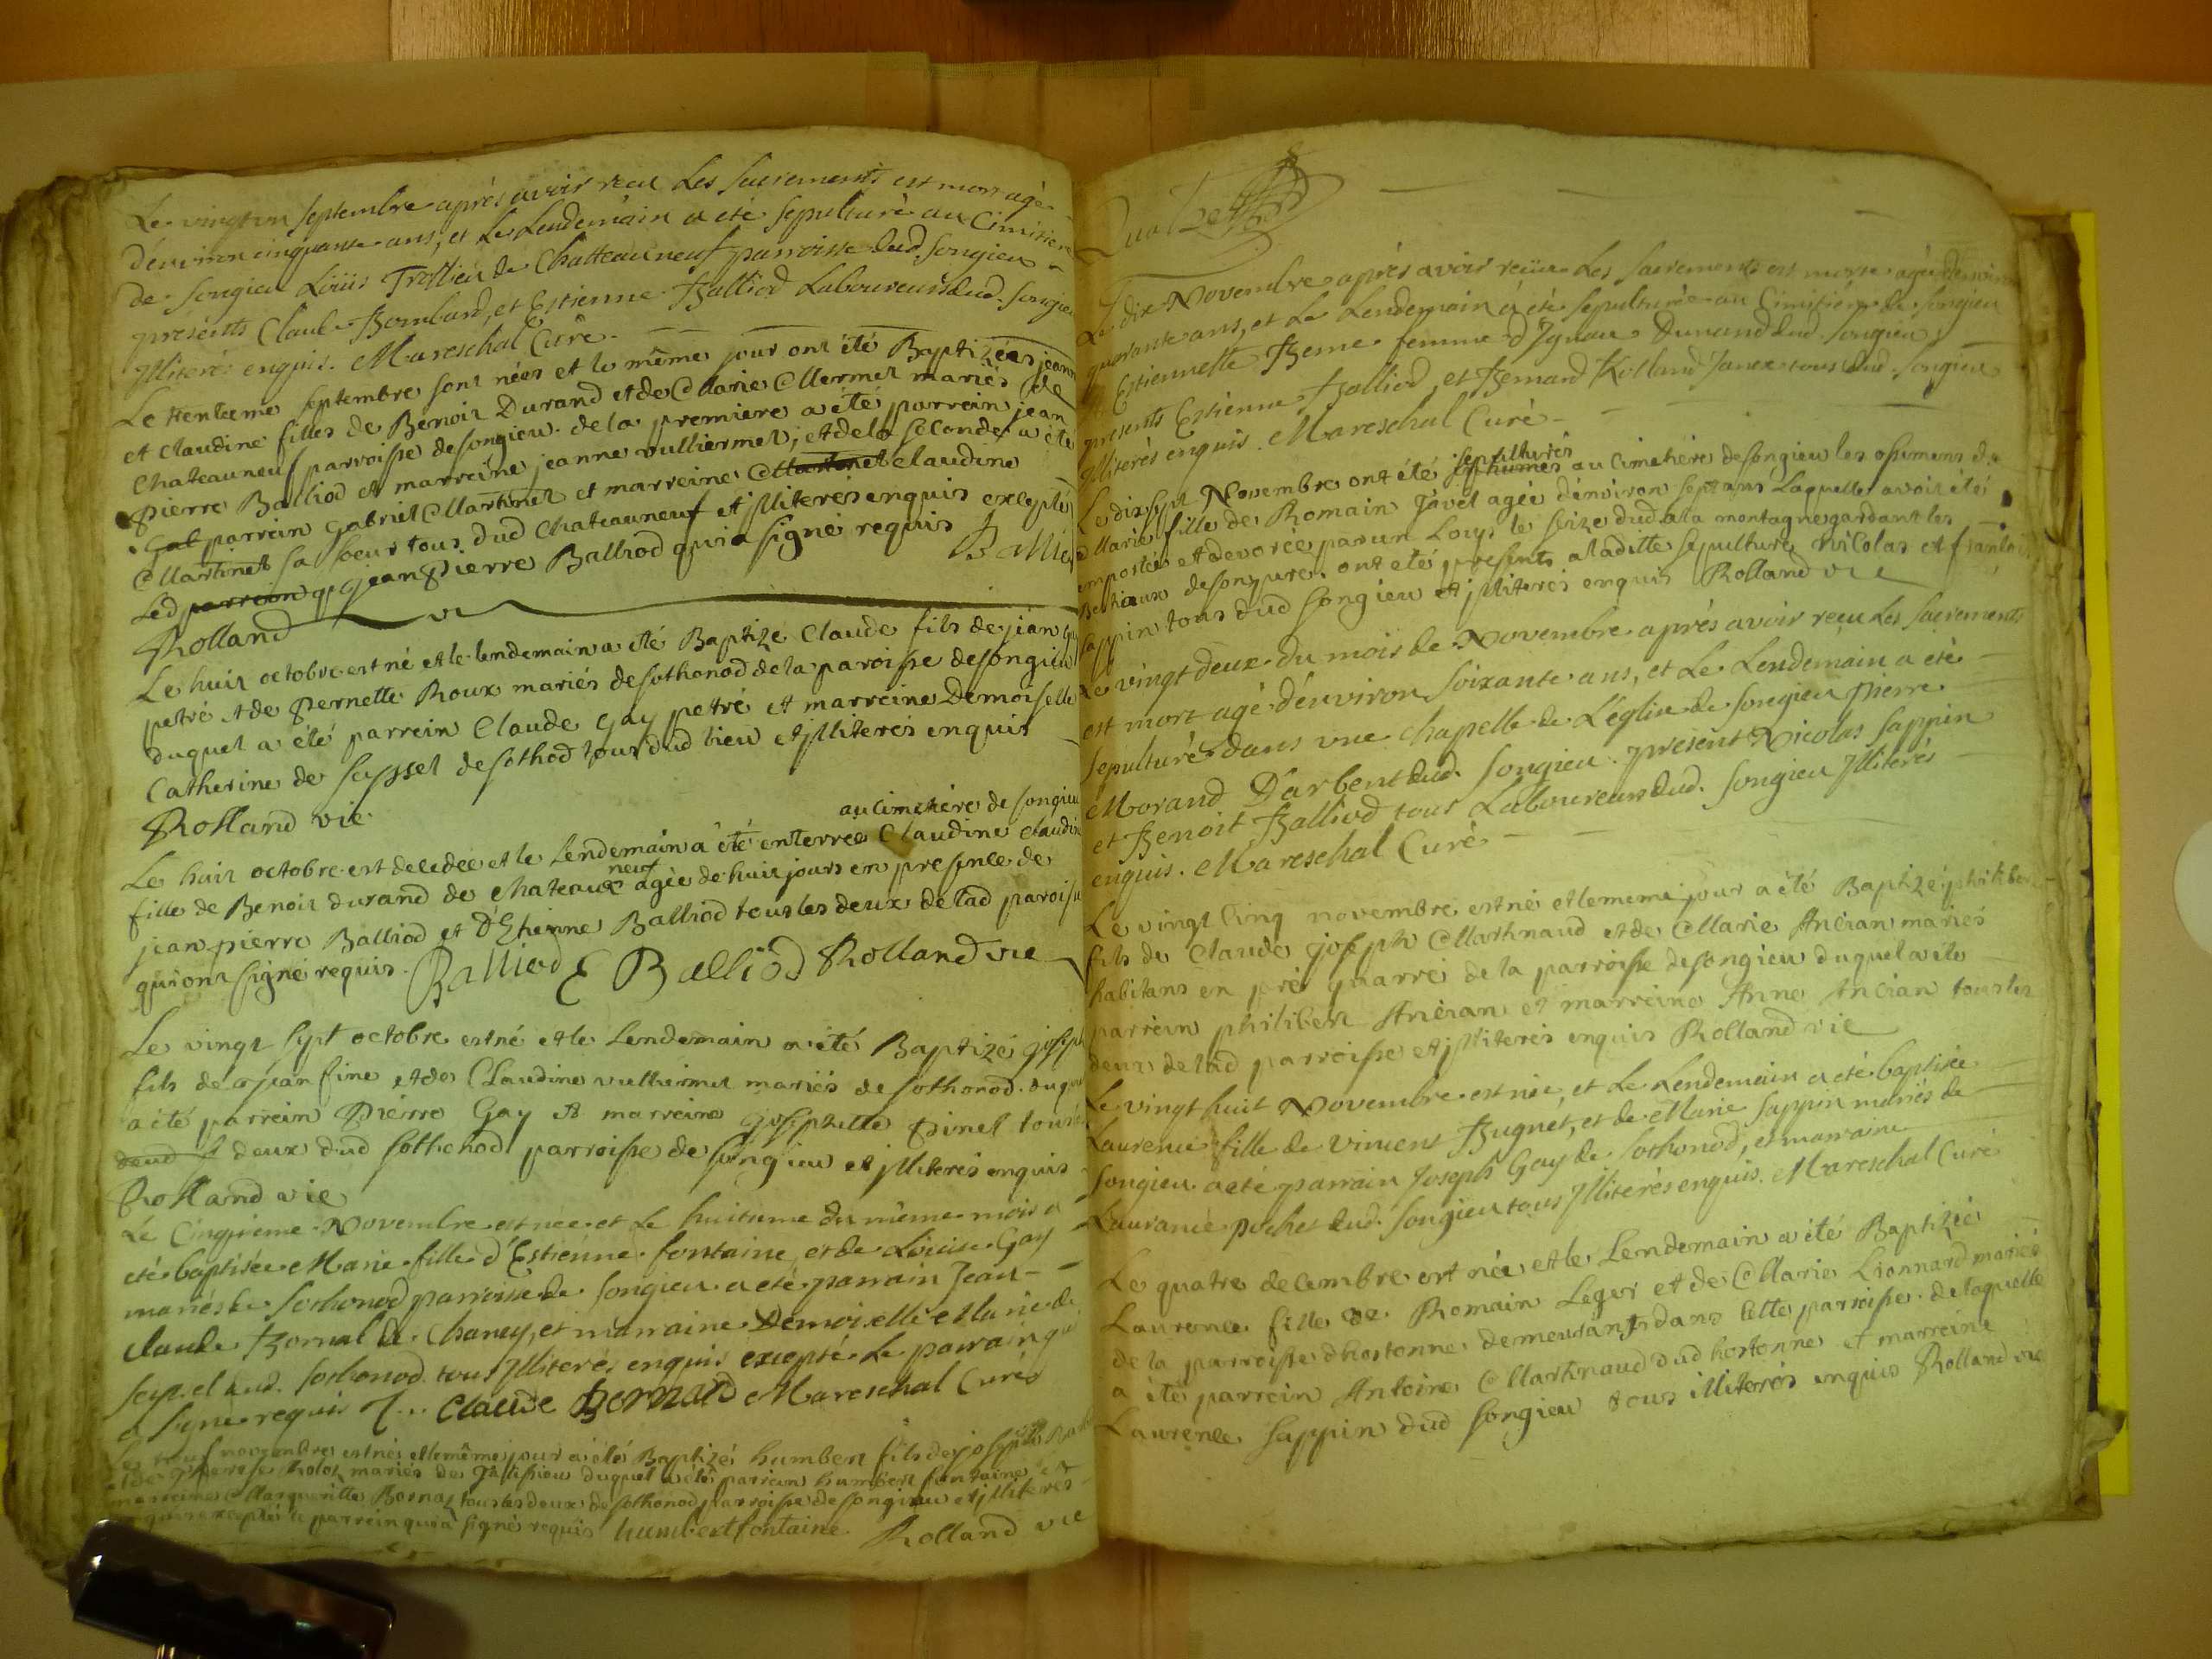 Le vingt un septembre après avoir reçu les sacrements est mort agé
d'environ cinquante ans, et le lendemain a eté sepulturé au Cimitiere
de Songieu Loüis Trollieu de Chatteauneuf parroisse dud. Songieu
présents Claude Bombard, et Estienne Balliod Laboureurs dud. Songieu
Illiterés enquis. Mareschal Curé
Le trentieme septembre sont nées et le même jour ont été Baptizées jeanne
et Claudine filles de Benoit Durand et de Marie Mermet mariés de
Chateauneuf parroisse de songieu. de la premiere a été parrein jean
pierre Balliod et marreine jeanne vulliermet, et de la seconde a été
Gab parrein Gabriel Martinet et marreine Martinet claudine
Martinet sa soeur tous dud Chateauneuf et jlliterés enquis excepté
Led parrein q jean pierre Balliod qui a signé requis Balliod
Rolland vi
Le huit octobre est né et le lendemain a eté Baptizé Claude fils de jean Gay
petré et de Pernette Roux mariés de sothonod de la paroisse de songieu
duquel a été parrein Claude Gay petré et marreine Demoiselle
Catherine de Seyssel de sothod tous dud lieu et jlliterés enquis
Rolland vie
au cimetière de songieu
Le huit octobre est decedée et le Lendemain a été enterrée Claudine claudine
neuf
fille de Benoit durand de chateaux agée de huit jours en presence de
jean pierre Balliod et D'Etienne Balliod tous les deux de lad paroisse
qui ont signé requis. Balliod E Balliod Rolland vie
Le vingt sept octobre est né et le Lendemain a été Baptizé joseph
fils de jean fine et de Claudine vulliermet mariés de sothonod. duquel
a été parrein Pierre Gay et marreine josephette Pinet tous
deux dud sothonod parroisse de songieu et jlliterés enquis
Rolland vie
Le Cinqieme Novembre est née et le huitieme du même mois a
eté baptisée Marie fille d'Estienne fontaine, et de Loüise Gay
mariés de Sothonod parroisse de Songieu a eté parrain Jean
Claude Bornal de Chaney, et marraine Demoiselle Marie de
Seyssel dud. Sothonod. tous Illiterés enquis excepté le parrain qui
a signé requis Claude Bornard Mareschal Curé
Le neuf novembre est né et le même jour a été Baptizé humbert fils de joseph
et de mariés de duquel a été parrein humbert fontaine et
marreine Margueritte Bornaz tous les deux de sothonod parroisse de songieu et jlliterés
enquis excepté le parrein qui a signé requis humbert fontaine Rolland vie
Quatre
Le dix Novembre après avoir reçüe les sacrements est morte agée d'environ
quarante ans, et le Lendemain a eté sepulturée au Cimitière de Songieu
Estiennette Berne femme d'Ignace Durand dud. Songieu,
présents Estienne Balliod, et Bernard Rolland Janex tous dud. Songieu
Illiterés enquis. Mareschal Curé
sepulturés
Le dix sept Novembre ont été au cimetière de songieu les ossements de
Marie fille de Romain Javet agée d'environ sept ans Laquelle avoit été
emportée et devorée par un Loup le seize dud a la montagne gardant les
Bestiaux de songieu. ont eté presents a laditte sepulture nicolas et françois
sappin tous dud songieu et jlliterés enquis Rolland vie
Le vingt deux du mois de Novembre après avoir reçu les sacrements
est mort agé d'environ soixante ans, et le Lendemain a eté
sepulturé dans une chapelle de L'église de Songieu Pierre
Morand D'arbent dud. Songieu. présent Nicolas Sappin
et Benoit Balliod tous Laboureurs dud. Songieu Illiterés
enquis. Mareschal Curé
Le vingt cinq novembre est né et le meme jour a été Baptizé philibert
fils de Claude joseph Martinaud et de Marie Ancian mariés
habitans en pré quarré de la parroisse de songieu duquel a été
parrein philibert Ancian et marreine Anne Ancian tous les
deux de lad parroisse et jlliterés enquis Rolland vie
Le vingt huit Novembre est née, et le Lendemain a eté baptisée
Laurence fille de Vincent Bugnet, et de Marie Sappin mariés de
Songieu. a eté parrain Joseph Gay de Sothonod, et marraine
Laurance pochet dud. Songieu tous Illiterés enquis. Mareschal Curé
Le quatre decembre est née et le Lendemain a été Baptizée
Laurence fille de Romain Leger et de Marie Lionnard mariés
de la parroisse d'hostonne demeurants dans cette parroisse. de laquelle
a été parrein Antoine Martinaud dud hostonne et marreine
Laurence sappin dud songieu tous illiterés enquis Rolland vie